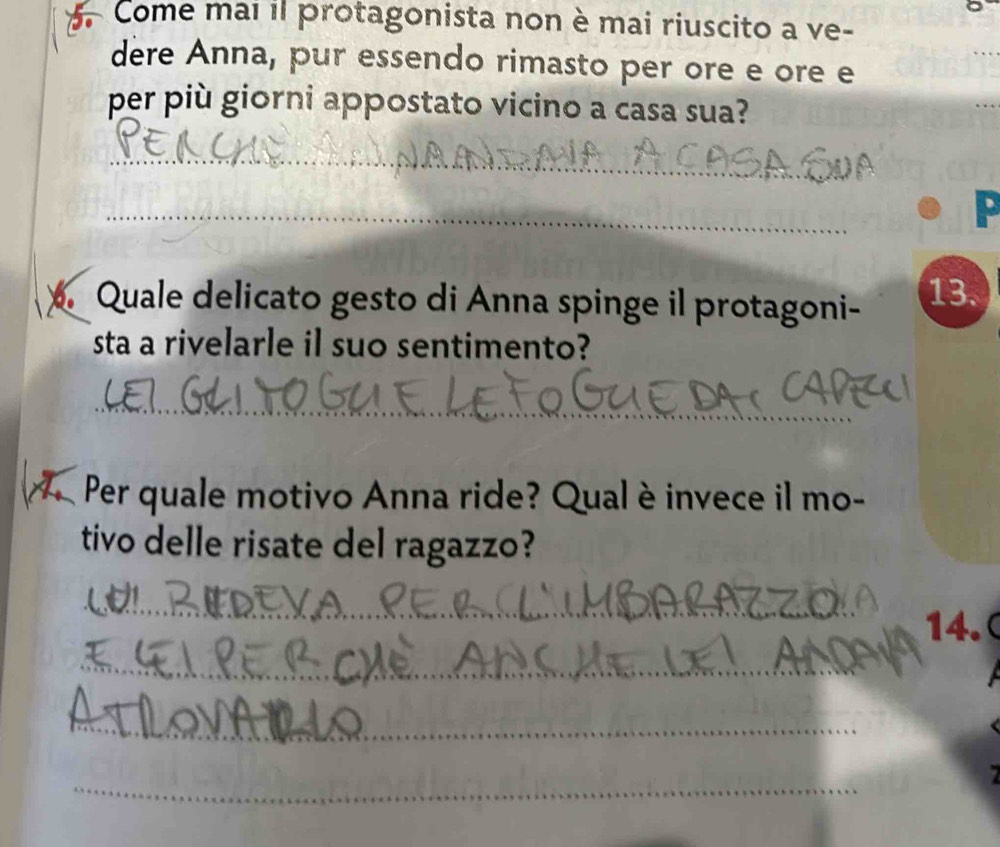 5. Come mai il protagonista non è mai riuscito a ve-
dere Anna, pur essendo rimasto per ore e ore e
per più giorni appostato vicino a casa sua?
PERCHÈ ANNA ANDAVA A CASA SUA
P
6. Quale delicato gesto di Anna spinge il protagoni-
sta a rivelarle il suo sentimento?
LEI GLI TOGLIE LE FOGLIE DAI CAPELLI
13.
7. Per quale motivo Anna ride? Qual è invece il mo-
tivo delle risate del ragazzo?
LUI RIDEVA PER L'IMBARAZZO
E LEI PERCHÈ ANCHE LEI ANDAVA
A TROVARLO
14.